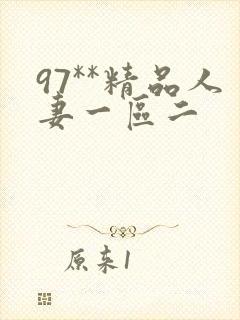 97**精品人
妻一區二
原来1